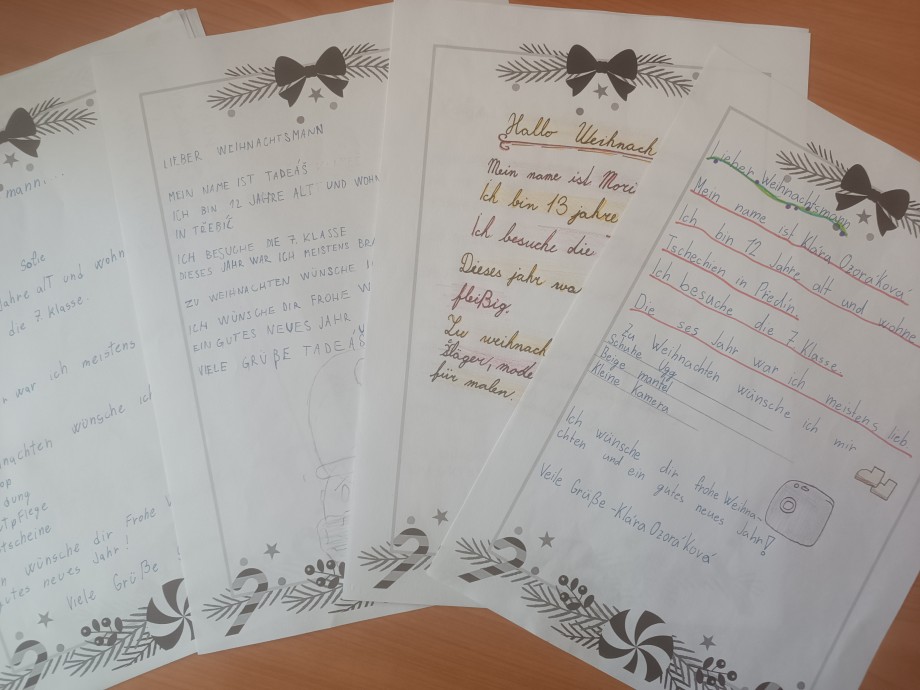 mann...
Sofie
Jahre alt und wohn
die 7 Klasse
war ich meistens
wünsche ich
dung
tpflege
tscheine
wünsche dir Frohe
gutes neues Jahr!
Viele Grüße
LIEBER WEIHNACHTSMANN
MEIN NAME IST TADEÁŠ
ICH BIN 12 JAHRE ALT UND WOHN
IN TŘEBÍČ
ICH BESUCHE DIE 7. KLASSE
DIESES JAHR WAR ICH MEISTENS BRA
ZU WEIHNACHTEN WÜNSCHE I
ICH WÜNSCHE DIR FROHE W
EIN GUTES NEUES JAHR
VIELE GRÜßE TADEÁŠ
Hallo Weihnach
Mein name ist Mori
Ich bin 13 jahre
Ich besuche die
Dieses jahr wa
fleißig.
Zu weihnach
für malen.
Lieber Weihnachtsmann
Mein name ist Klára Ozoráková
Ich bin 12 Jahre alt und wohne
Tschechien in Předín.
Ich besuche die 7. Klasse.
Die ses Jahr war ich meistens lieb
Zu Weihnachten wünsche ich mir
Schuhe Ugg
Beige mantel
Kleine Kamera
Ich wünsche dir frohe Weihna-
chten und ein gutes neues Jahr!
Veile Grüße - Klára Ozoráková